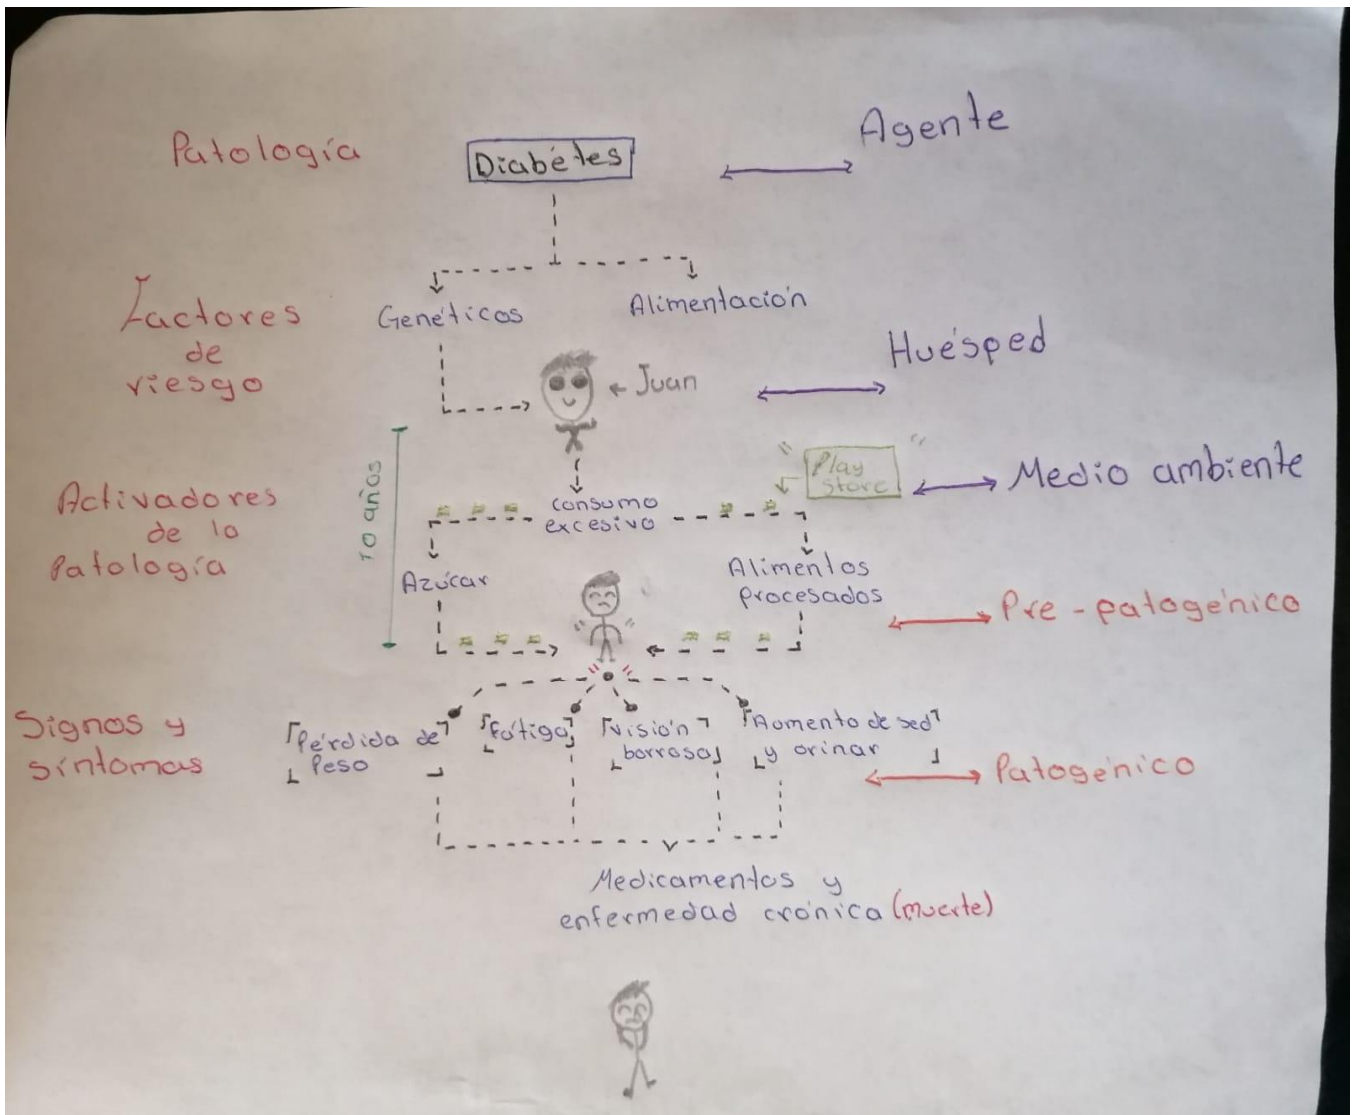 Patología
Diabétes
Agente
Factores
de
riesgo
Genéticos
Alimentación
Juan
Huésped
10 años
Activadores
de la
Patología
consumo
excesivo
Play
Store
Medio ambiente
Azúcar
Alimentos
procesados
Pre-patogénico
Signos y
síntomas
Pérdida de
Peso
fatiga
Visión
borrosa
Aumento de sed
y orinar
Patogénico
Medicamentos y
enfermedad crónica (muerte)